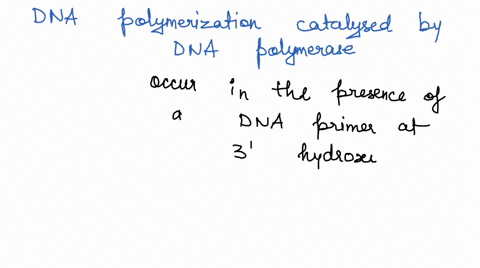 DNA polymerization catalysed by
DNA polymerase
occur in the presence of
a DNA primer at
3' hydroxe